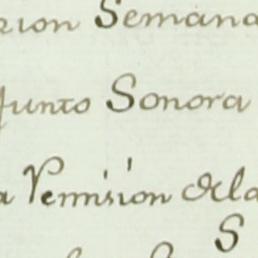 rion Semana
Junto Sonora
a Remision dela
S